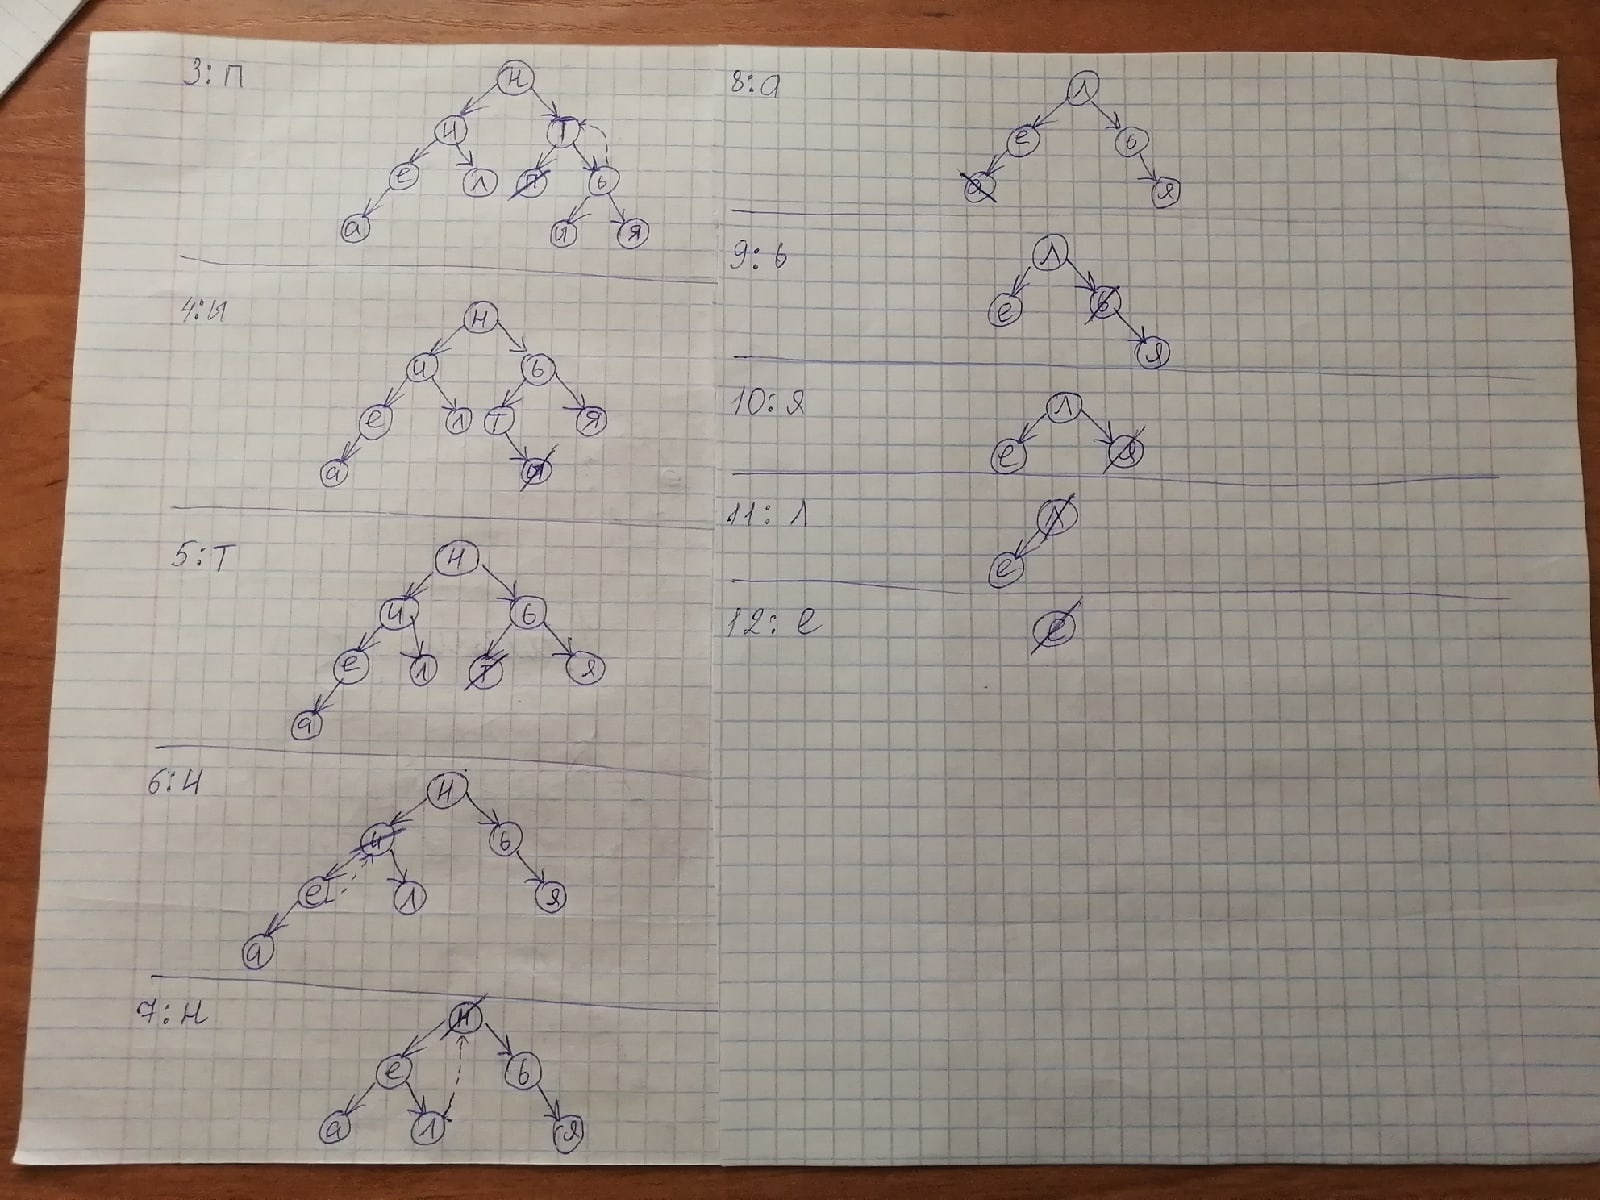 3: П
Н
И Т
е Л П ь
а ы Я
4: ы
Н
И ь
е Л Т Я
а ы
5: Т
Н
И ь
е Л Т Я
а
6: И
Н
И ь
е Л Я
а
7: Н
Н
е ь
а Л Я
8: а
Л
е ь
а Я
9: ь
Л
е ь
Я
10: Я
Л
е Я
11: Л
Л
е
12: е
е